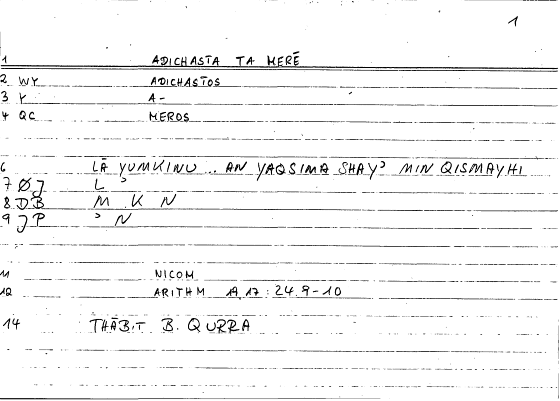 1
1 ADICHASTA TA MERĒ
2 WY ADICHASTOS
3 Y A-
4 QC MEROS
6 LĀ YUMKINU .. AN YAQSIMA SHAYʾ MIN QISMAYHI
7 ØJ L ʾ
8 DB M K N
9 JP ʾ N
11 NICOM
12 ARITHM A 17 : 24.9-10
14 THĀBIT B. QURRA